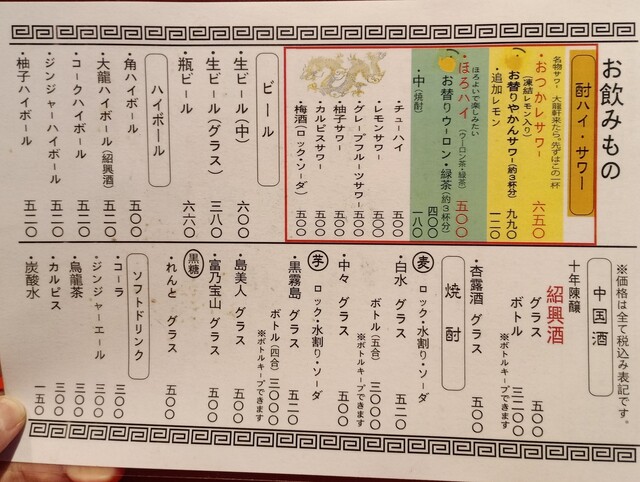 お飲みもの
※価格は全て税込み表記です。
酎ハイ・サワー
名物サワー 大龍軒来たら。先ずはこの一杯
・おつかレサワー 六五〇
(凍結レモン入り)
お替りやかんサワー(約3杯分) 九九〇
・追加レモン 一二〇
ほろよいで楽しみたい
・ほろハイ(ウーロン茶・緑茶) 五〇〇
お替りウーロン・緑茶(約3杯分) 四〇〇
・中(焼酎) 一八〇
・チューハイ 五〇〇
・レモンサワー 五〇〇
・グレープフルーツサワー 五〇〇
・柚子サワー 五〇〇
・カルピスサワー 五〇〇
・梅酒(ロック・ソーダ) 五〇〇
ビール
・生ビール(中) 六〇〇
・生ビール(グラス) 三八〇
・瓶ビール 六六〇
ハイボール
・角ハイボール 五〇〇
・大龍ハイボール(紹興酒) 五二〇
・コークハイボール 五二〇
・ジンジャーハイボール 五二〇
・柚子ハイボール 五二〇
中国酒
十年陳醸
紹興酒
グラス 五〇〇
ボトル 三二〇〇
※ボトルキープできます
・杏露酒 グラス 五〇〇
焼酎
麦 ロック・水割り・ソーダ
・白水 グラス 五二〇
ボトル(五合) 三〇〇〇
※ボトルキープできます
・中々 グラス 五〇〇
芋 ロック・水割り・ソーダ
・黒霧島 グラス 五二〇
ボトル(四合) 三〇〇〇
※ボトルキープできます
・島美人 グラス 五〇〇
・富乃宝山 グラス 五〇〇
黒糖
・れんと グラス 五〇〇
ソフトドリンク
・コーラ 三〇〇
・ジンジャーエール 三〇〇
・烏龍茶 三〇〇
・カルピス 三〇〇
・炭酸水 一五〇